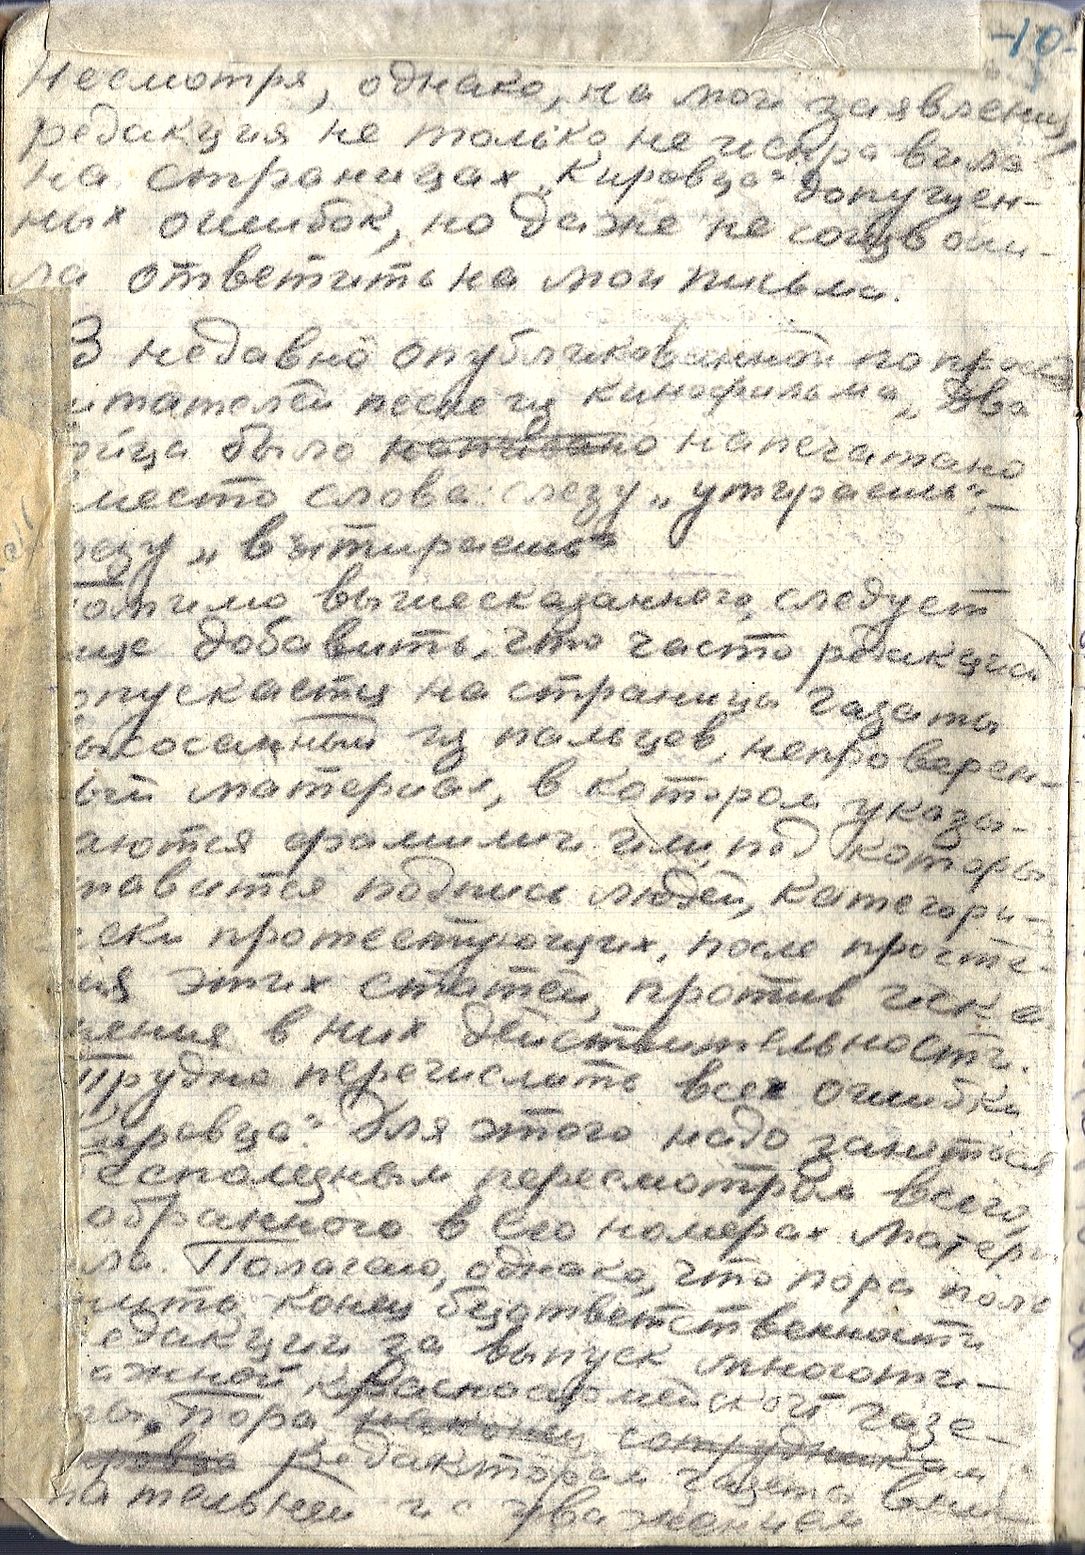 -10-
Несмотря, однако, на мои заявления,
редакция не только не исправила
на страницах „Кировца" допущен-
ных ошибок, но даже не соизволи-
ла ответить на мои письма.
В недавно опубликованной по просьбе
итателей песне из кинофильма „Два
ойца было напечатано
место слова: слезу „утираешь" –
езу „вытираешь"
омимо вышесказанного, следует
ще добавить, что часто редакцией
опускаетц на страницы газаты
ысосанный из пальцев, непроверен-
ый материал, в котором указы-
аются фамилии или под которы
тавится подпись людей, категори-
ески протестующих, после прочте-
ия этих статей, против иска
ения в них действительности.
Трудно перечислить все ошибки
ировца". Для этого надо заняться
есполезным пересмотром всего,
обранного в его номерах матери
ла. Полагаю, однако, что пора поло
ить конец безответственности
едакции за выпуск многоти-
ажной красноармейской газе-
ты. Пора сотрудникам
редакторам газеты вни-
мательней и с уважением